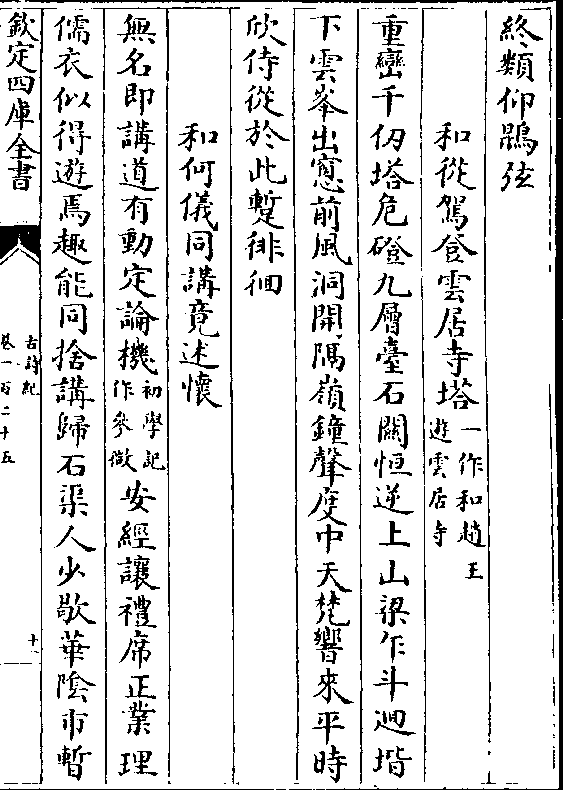 終類仰鶤弦
和從駕登雲居寺塔一作和趙王遊雲居寺
重巒千仞塔危磴九層臺石闗恒逆上山梁乍斗迴堦
下雲峯出窻前風洞開隔嶺鐘聲度中天梵響來平時
欣侍從於此蹔徘徊
和何儀同講竟述懷
無名即講道有動定論機初學記作參微安經讓禮席正業理
儒衣似得遊焉趣能同捨講歸石渠人少歇華隂市暫
欽定四庫全書
古詩紀
卷一百二十五
十一